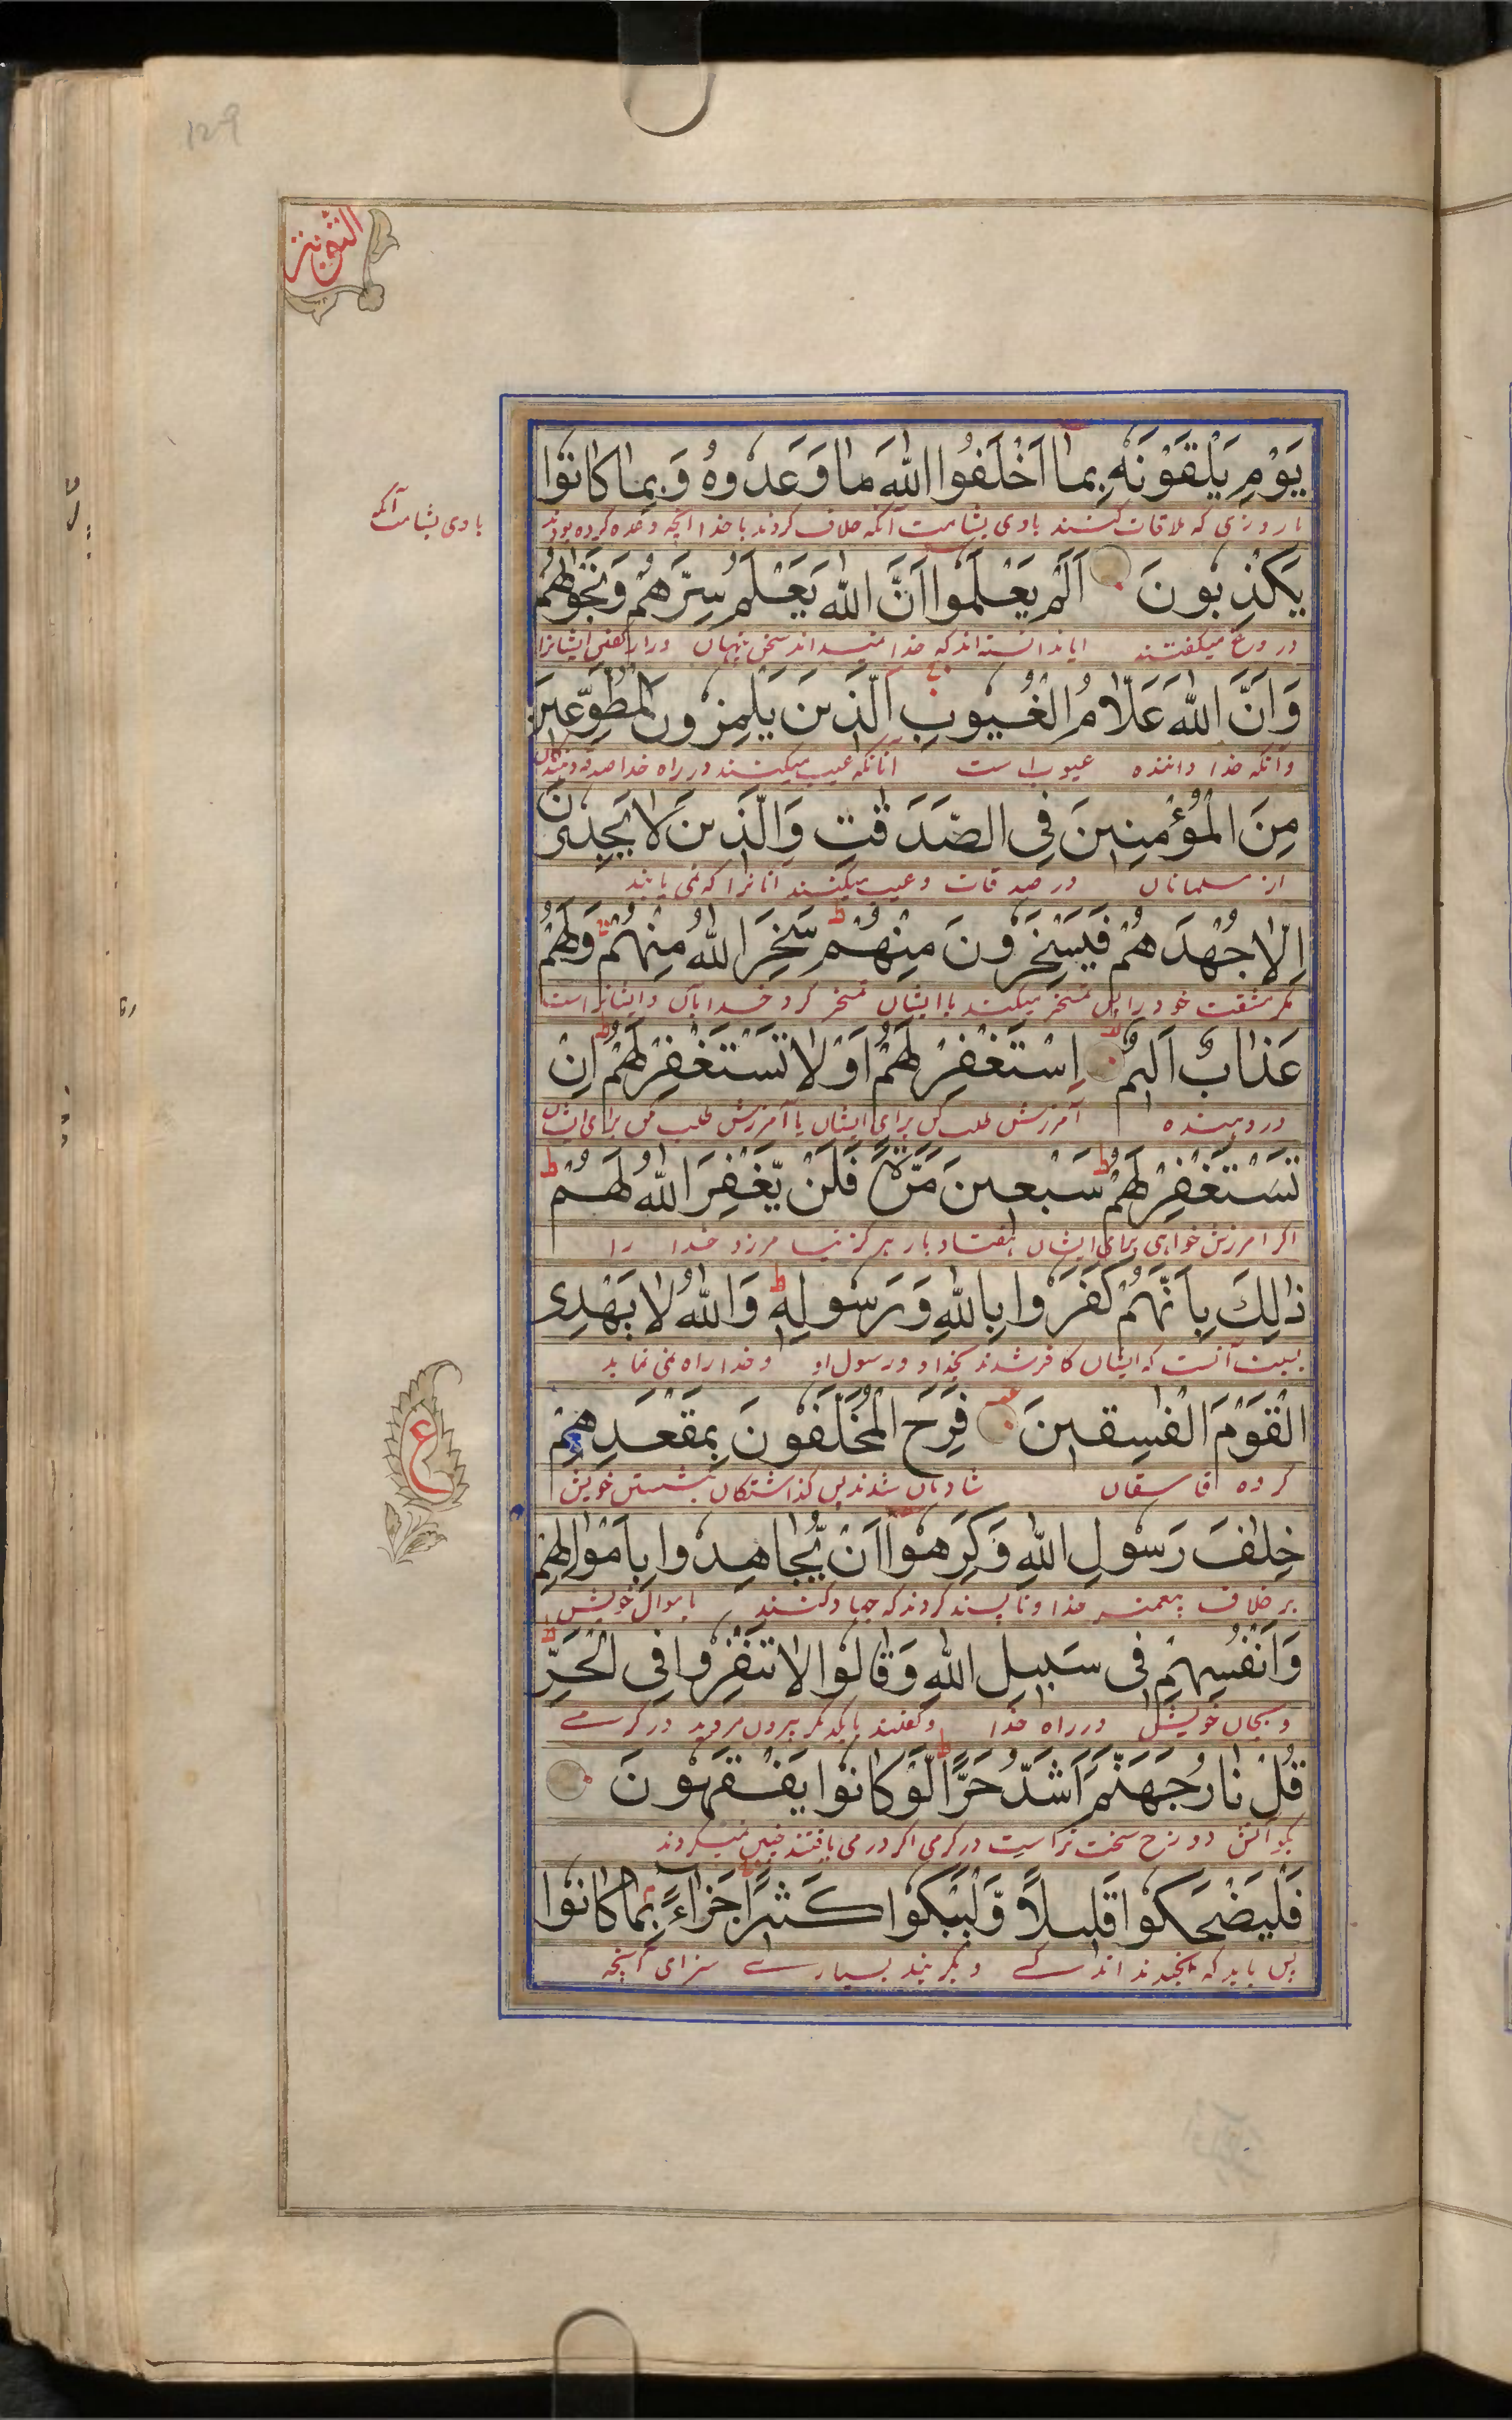 129
التوبة
يَوْمِ يَلْقَوْنَهٗ بِمَآ اَخْلَفُوا اللّٰهَ مَا وَعَدُوهُ وَبِمَا كَانُوْا
تا روزی که ملاقات کنند باوی بشامت آنکه خلاف کردند با خدا آنچه وعده کرده بودند
باوی بشامت آنکه
يَكْذِبُونَ اَلَمْ يَعْلَمُوا اَنَّ اللّٰهَ يَعْلَمُ سِرَّهُمْ وَنَجْوٰىهُمْ
دروغ میکفتند ایا ندانسته اند که خدا میداند سخن پنهان وراز کفتن ایشانرا
وَاَنَّ اللّٰهَ عَلَّامُ الْغُيُوبِ اَلَّذِينَ يَلْمِزُونَ الْمُطَّوِّعِينَ
وآنکه خدا داننده عیوب است آنانکه عیب میکنند در راه خدا صدقه دهندکان
مِنَ الْمُؤْمِنِينَ فِي الصَّدَقٰتِ وَالَّذِينَ لَا يَجِدُونَ
از مسلمانان در صدقات وعیب میکنند آنانرا که نمی یابند
اِلَّا جُهْدَهُمْ فَيَسْخَرُونَ مِنْهُمْ ط سَخِرَ اللّٰهُ مِنْهُمْ وَلَهُمْ
مکر مشقت خود را پس تمسخر میکنند با ایشان تمسخر کرد خدا بآن وایشانرا است
عَذَابٌ اَلِيمٌ اِسْتَغْفِرْ لَهُمْ اَوْ لَا تَسْتَغْفِرْ لَهُمْ ط اِنْ
درد دهنده آمرزش طلب کن برای ایشان یا آمرزش طلب مکن برای ایشان
تَسْتَغْفِرْ لَهُمْ ط سَبْعِينَ مَرَّةً فَلَنْ يَّغْفِرَ اللّٰهُ لَهُمْ ط
اکر امرزش خواهی برای ایشان هفتاد بار هرکز نیامرزد خدا را
ذٰلِكَ بِاَنَّهُمْ كَفَرُوا بِاللّٰهِ وَرَسُولِهٖ ط وَاللّٰهُ لَا يَهْدِى
بسبب آنست که ایشان کافر شدند بخدا ورسول او وخدا راه نمی نماید
الْقَوْمَ الْفٰسِقِينَ فَرِحَ الْمُخَلَّفُونَ بِمَقْعَدِهِمْ
کروه فاسقان شادمان شدند پس کذاشتکان بنشستن خویش
ع
خِلٰفَ رَسُولِ اللّٰهِ وَكَرِهُوْا اَنْ يُّجَاهِدُوا بِاَمْوَالِهِمْ
بر خلاف پیغمبر خدا وناپسند کردند که جهاد کنند باموال خویش
وَاَنْفُسِهِمْ فِى سَبِيلِ اللّٰهِ وَقَالُوا لَا تَنْفِرُوا فِى الْحَرِّ ط
وبجان خویش در راه خدا وکفتند بایکدیکر بیرون مروید در کرمی
قُلْ نَارُ جَهَنَّمَ اَشَدُّ حَرًّا ط لَّوْ كَانُوا يَفْقَهُونَ
بکو آتش دوزخ سخت تر است در کرمی اکر در می یافتند چنین نمیکردند
فَلْيَضْحَكُوا قَلِيلًا وَّلْيَبْكُوا كَثِيرًا جَزَآءً بِمَا كَانُوْا
پس باید که بخندند اندکے وبکریند بسیارے سزای آنچه